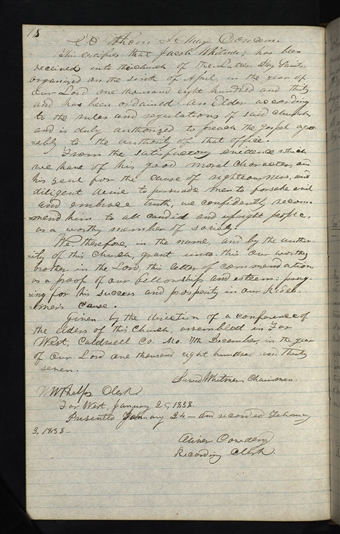 To Whom It May Concern.
This certifies that Jacob Whitmer, has been
received into the church of the Latter Day Saints
organized on the sixth of April, in the year of
Our Lord one thousand eight hundred and thirty
and has been ordained an Elder according
to the rules and regulations of said church
and is duly authorized to preach the gospel agre
ably to the authority of that office.
From the satisfactory evidence which
we have of his good moral character, and
his zeal for the cause of righteousness, and
diligent desire to persuade men to forsake evil
and embrace truth, we confidently recom
mend him to all candid and upright people,
as a worthy member of society.
We, therefore, in the name, and by the author
ity of this Church, grant unto this our worthy
brother in the Lord, this letter of commendation
as a proof of our fellowship and esteem: pray
ing for his success and prosperity in our Rede
mer's cause.
Given by the direction of a conference of
the Elders of this Church, assembled in Far
West, Caldwell Co. Mo. 7th December, in the year
of Our Lord one thousand eight hundred and thirty
seven.
David Whitmer Chairman
W W Phelps Clerk
Far West, January 25, 1838.
Presented January 24 and recorded February
3. 1838
Oliver Cowdery
Recording Clerk